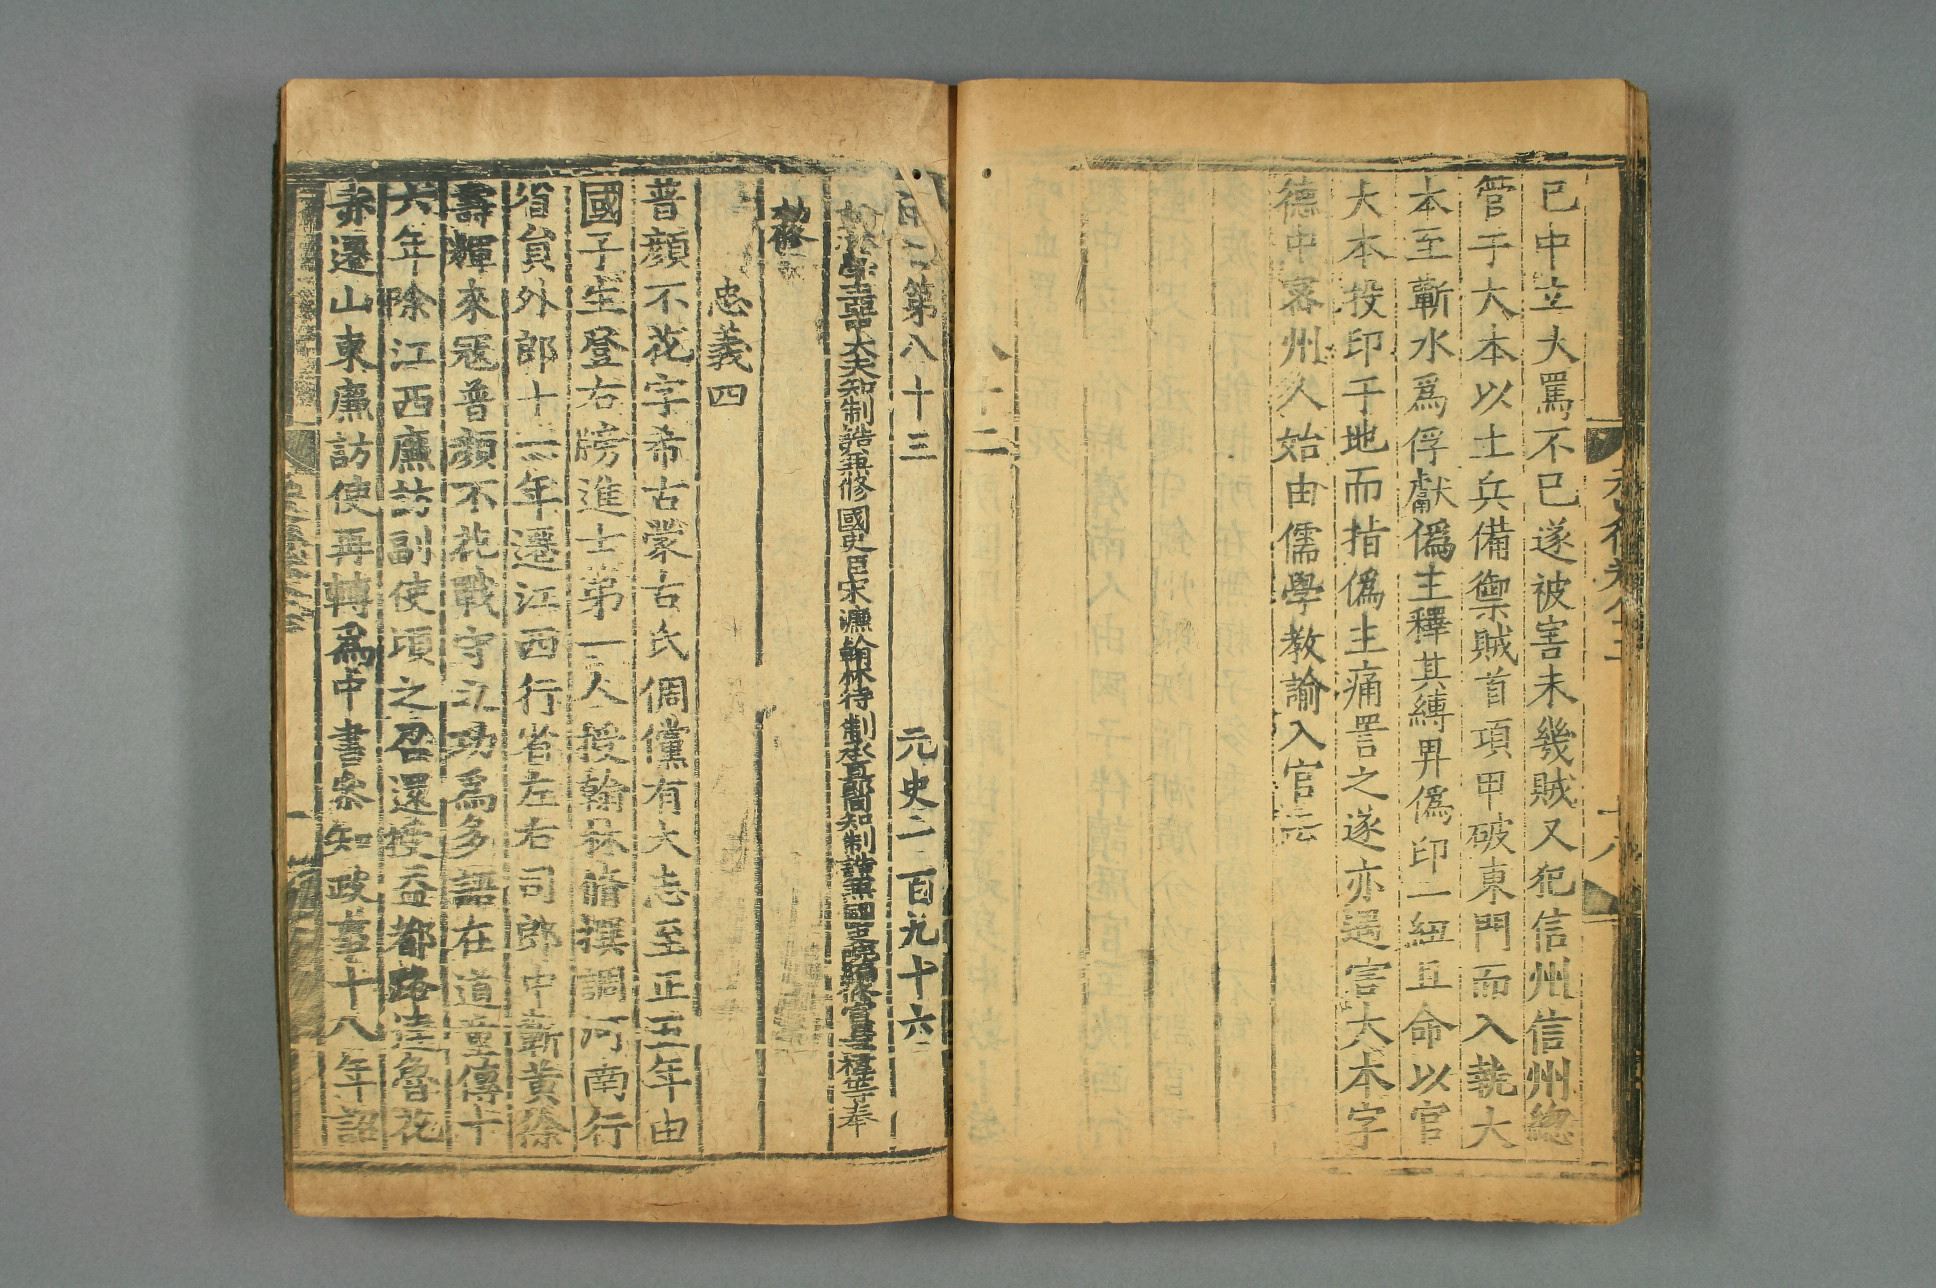 已中立大罵不已遂被害未幾賊又犯信州信州總
管于大本以土兵備禦賊首項甲破東門而入執大
本至蘄水爲俘獻僞主釋其縛畀僞印一紐且命以官
大本投印于地而指僞主痛詈之遂亦遇害大本字
德中密州人始由儒學教諭入官云
八十二
第八十三 元史二百九十六
學士亞中大夫知制誥兼修國史臣宋濂翰林待制承直郎同知制誥兼國史院編修官臣王禕等奉
勑修
忠義四
普顏不花字希古蒙古氏倜儻有大志至正五年由
國子生登右榜進士第一人授翰林脩撰調河南行
省員外郎十一年遷江西行省左右司郎中蘄黃徐
壽輝來寇普顏不花戰守之功爲多語在道童傳十
六年除江西廉訪副使頃之召還授益都路達魯花
赤遷山東廉訪使再轉爲中書叅知政事十八年詔